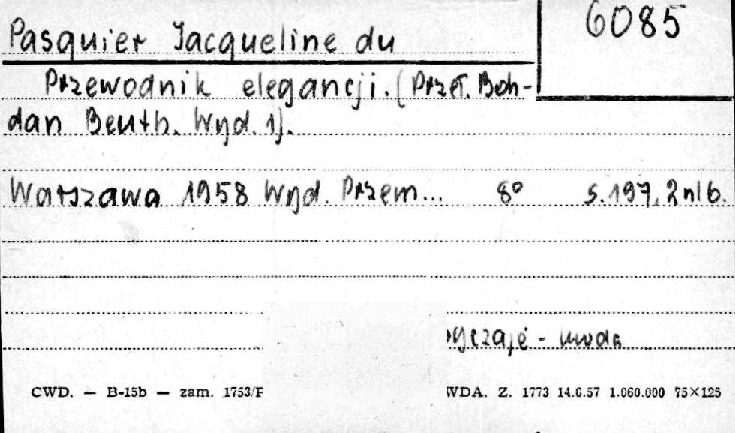 6085
Pasquier Jacqueline du
Przewodnik elegancji. (Przeł. Boh-
dan Beuth. Wyd. 1).
Warszawa 1958 Wyd. Przem... 8° s. 197, 2 nlb.
yczaje - moda
CWD. — B-15b — zam. 1753/P WDA. Z. 1773 14.6.57 1.060.000 75×125